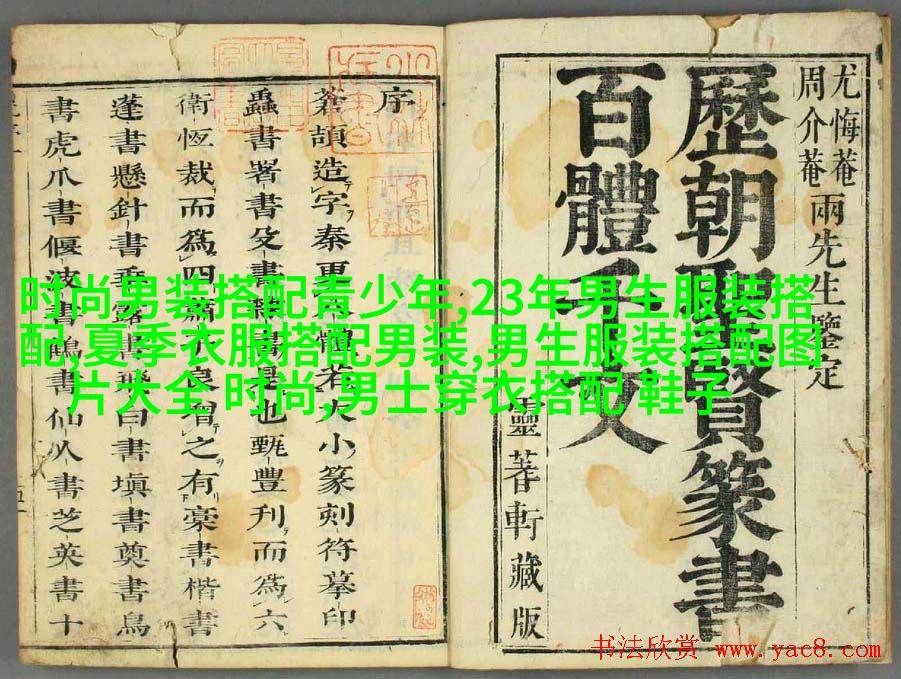 时尚男装搭配青少年,23年男生服装搭
配,夏季衣服搭配男装,男生服装搭配图
片大全 时尚 男士穿衣搭配 鞋子
尤悔菴
周介菴
兩先生鑒定
歷朝聖賢篆書
百體千文
靈蓍軒藏版
序
蒼頡造字秦更體若大小篆刻符摹印
蟲書署書殳書書是也甄豐刋而爲六
衛恆裁而爲四良謂之有稾書楷書
蓬書懸針書垂露書飛白書塡書奠書鳥
書虎爪書偃波書鶴書仙人書芝英書十
书法欣赏 www.yac8.com